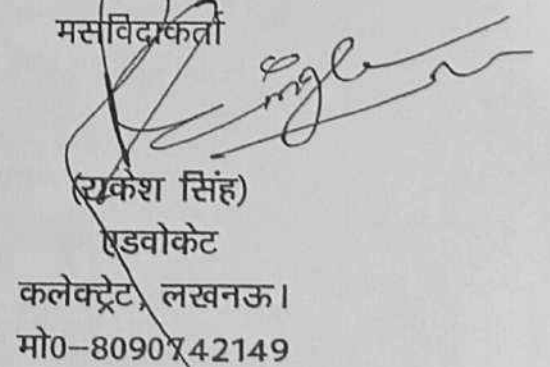 मसविदाकर्ता
(राकेश सिंह)
एडवोकेट
कलेक्ट्रेट, लखनऊ।
मो0–8090742149